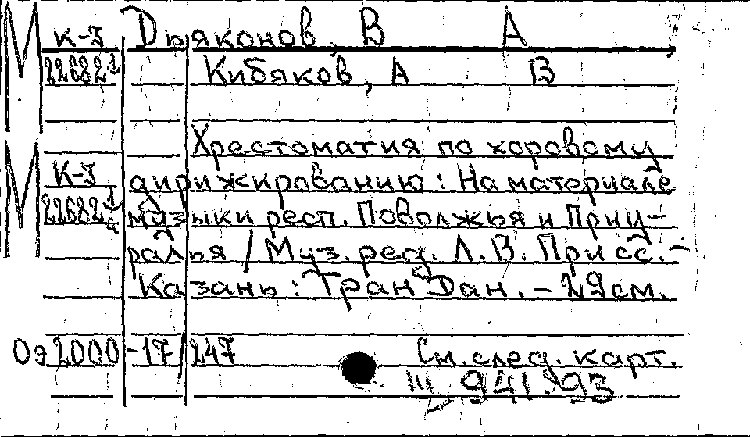 М к-3 Дьяконов, В А
22682 Кибяков, А В
Хрестоматия по хоровому
М К-3 дирижированию: На материале
22682 музыки респ. Поволжья и Приу-
ралья / Муз. ред. Л. В. Присс. -
Казань: Тран Дан. - 29см.
Оэ 2000-17/247 См. след. карт.
III 941.93